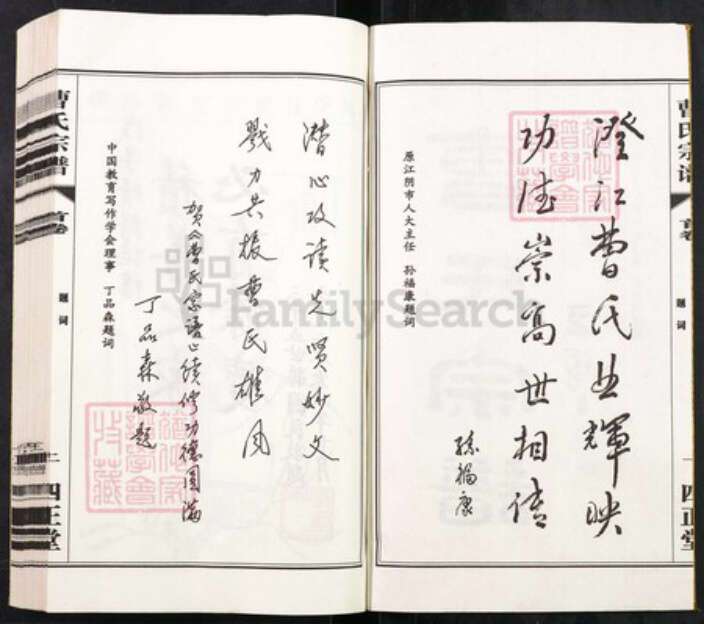 曹氏宗谱 首卷 题词 四正堂
澄江曹氏輝映
功德崇高世相传
孙福康
原江阴市人大主任 孙福康题词
潜心攻读先贤妙文
戮力共振曹氏雄风
贺《曹氏宗谱》续修功德圆满
丁品森敬题
中国教育写作学会理事 丁品森题词
曹氏宗谱 首卷 题词 四正堂
FamilySearch